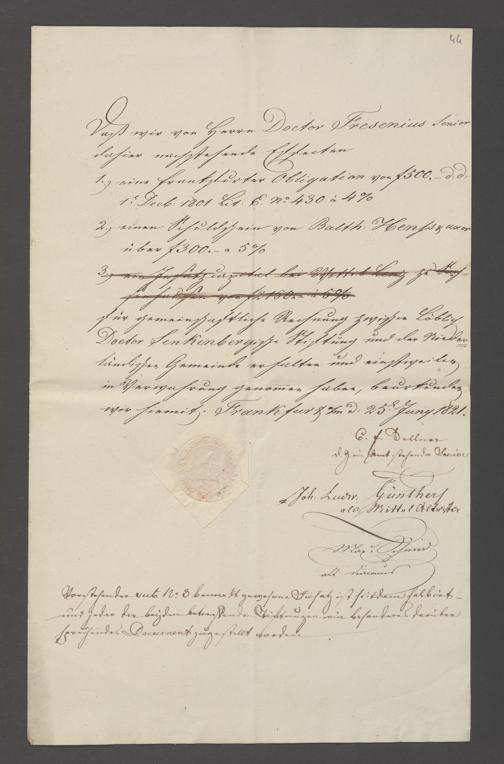 44
Daß wir von Herrn Doctor Fresenius Senior
dahier nachstehende Effecten
1.) eine Frankfurter Obligation von f500.– d.d.
1t Decb. 1801 Lit. C. No 430 à 4%
2.) einen Schuldschein von Balth. Henß & uxor
über f300.– à 5%
3.) ein Insatzcapital bei
von f. 150.– à 5%
für gemeinschaftliche Rechnung zwischen Löblich
Doctor Senkenbergische Stiftung und der Nieder
ländischen Gemeinde erhalten und einstweilen
in Verwahrung genommen haben, beurkunden
wir hiermit. Frankfurt a/m d. 25t Juny 1821.
C. F. Dellner
d. Z. im Amt stehender Senior
Joh. Ludw. Günther
als Mittel Aeltester
Max. Schmid
als
Vorstehender sub No. 3 bemerkt gewesene Insatz ist seitdem halbirt
und jeder der beyden betreffende Stiftungen ein besonderes darüber
sprechendes Document zugestellt worden